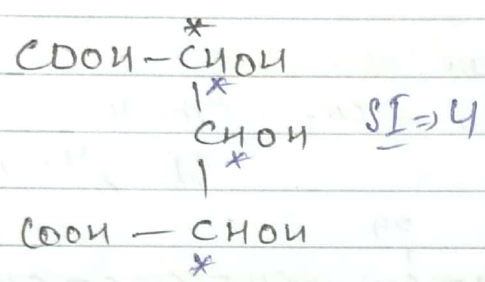 *
COOH – CHOH
*
CHOH SI ⇒ 4
*
COOH – CHOH
*